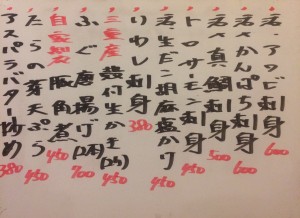 活〆アワビ刺身 600
活〆かんぱち刺身 600
活〆真鯛刺身 500
トロサーモン刺身 450
活〆生だこ胡麻塩かけ 450
いわし刺身 380
三重産 殻付生かき(2ヶ)
ふぐ唐揚げ(2ヶ) 700
自家製 豚角煮 450
たらの芽天ぷら 450
アスパラバター炒め 380